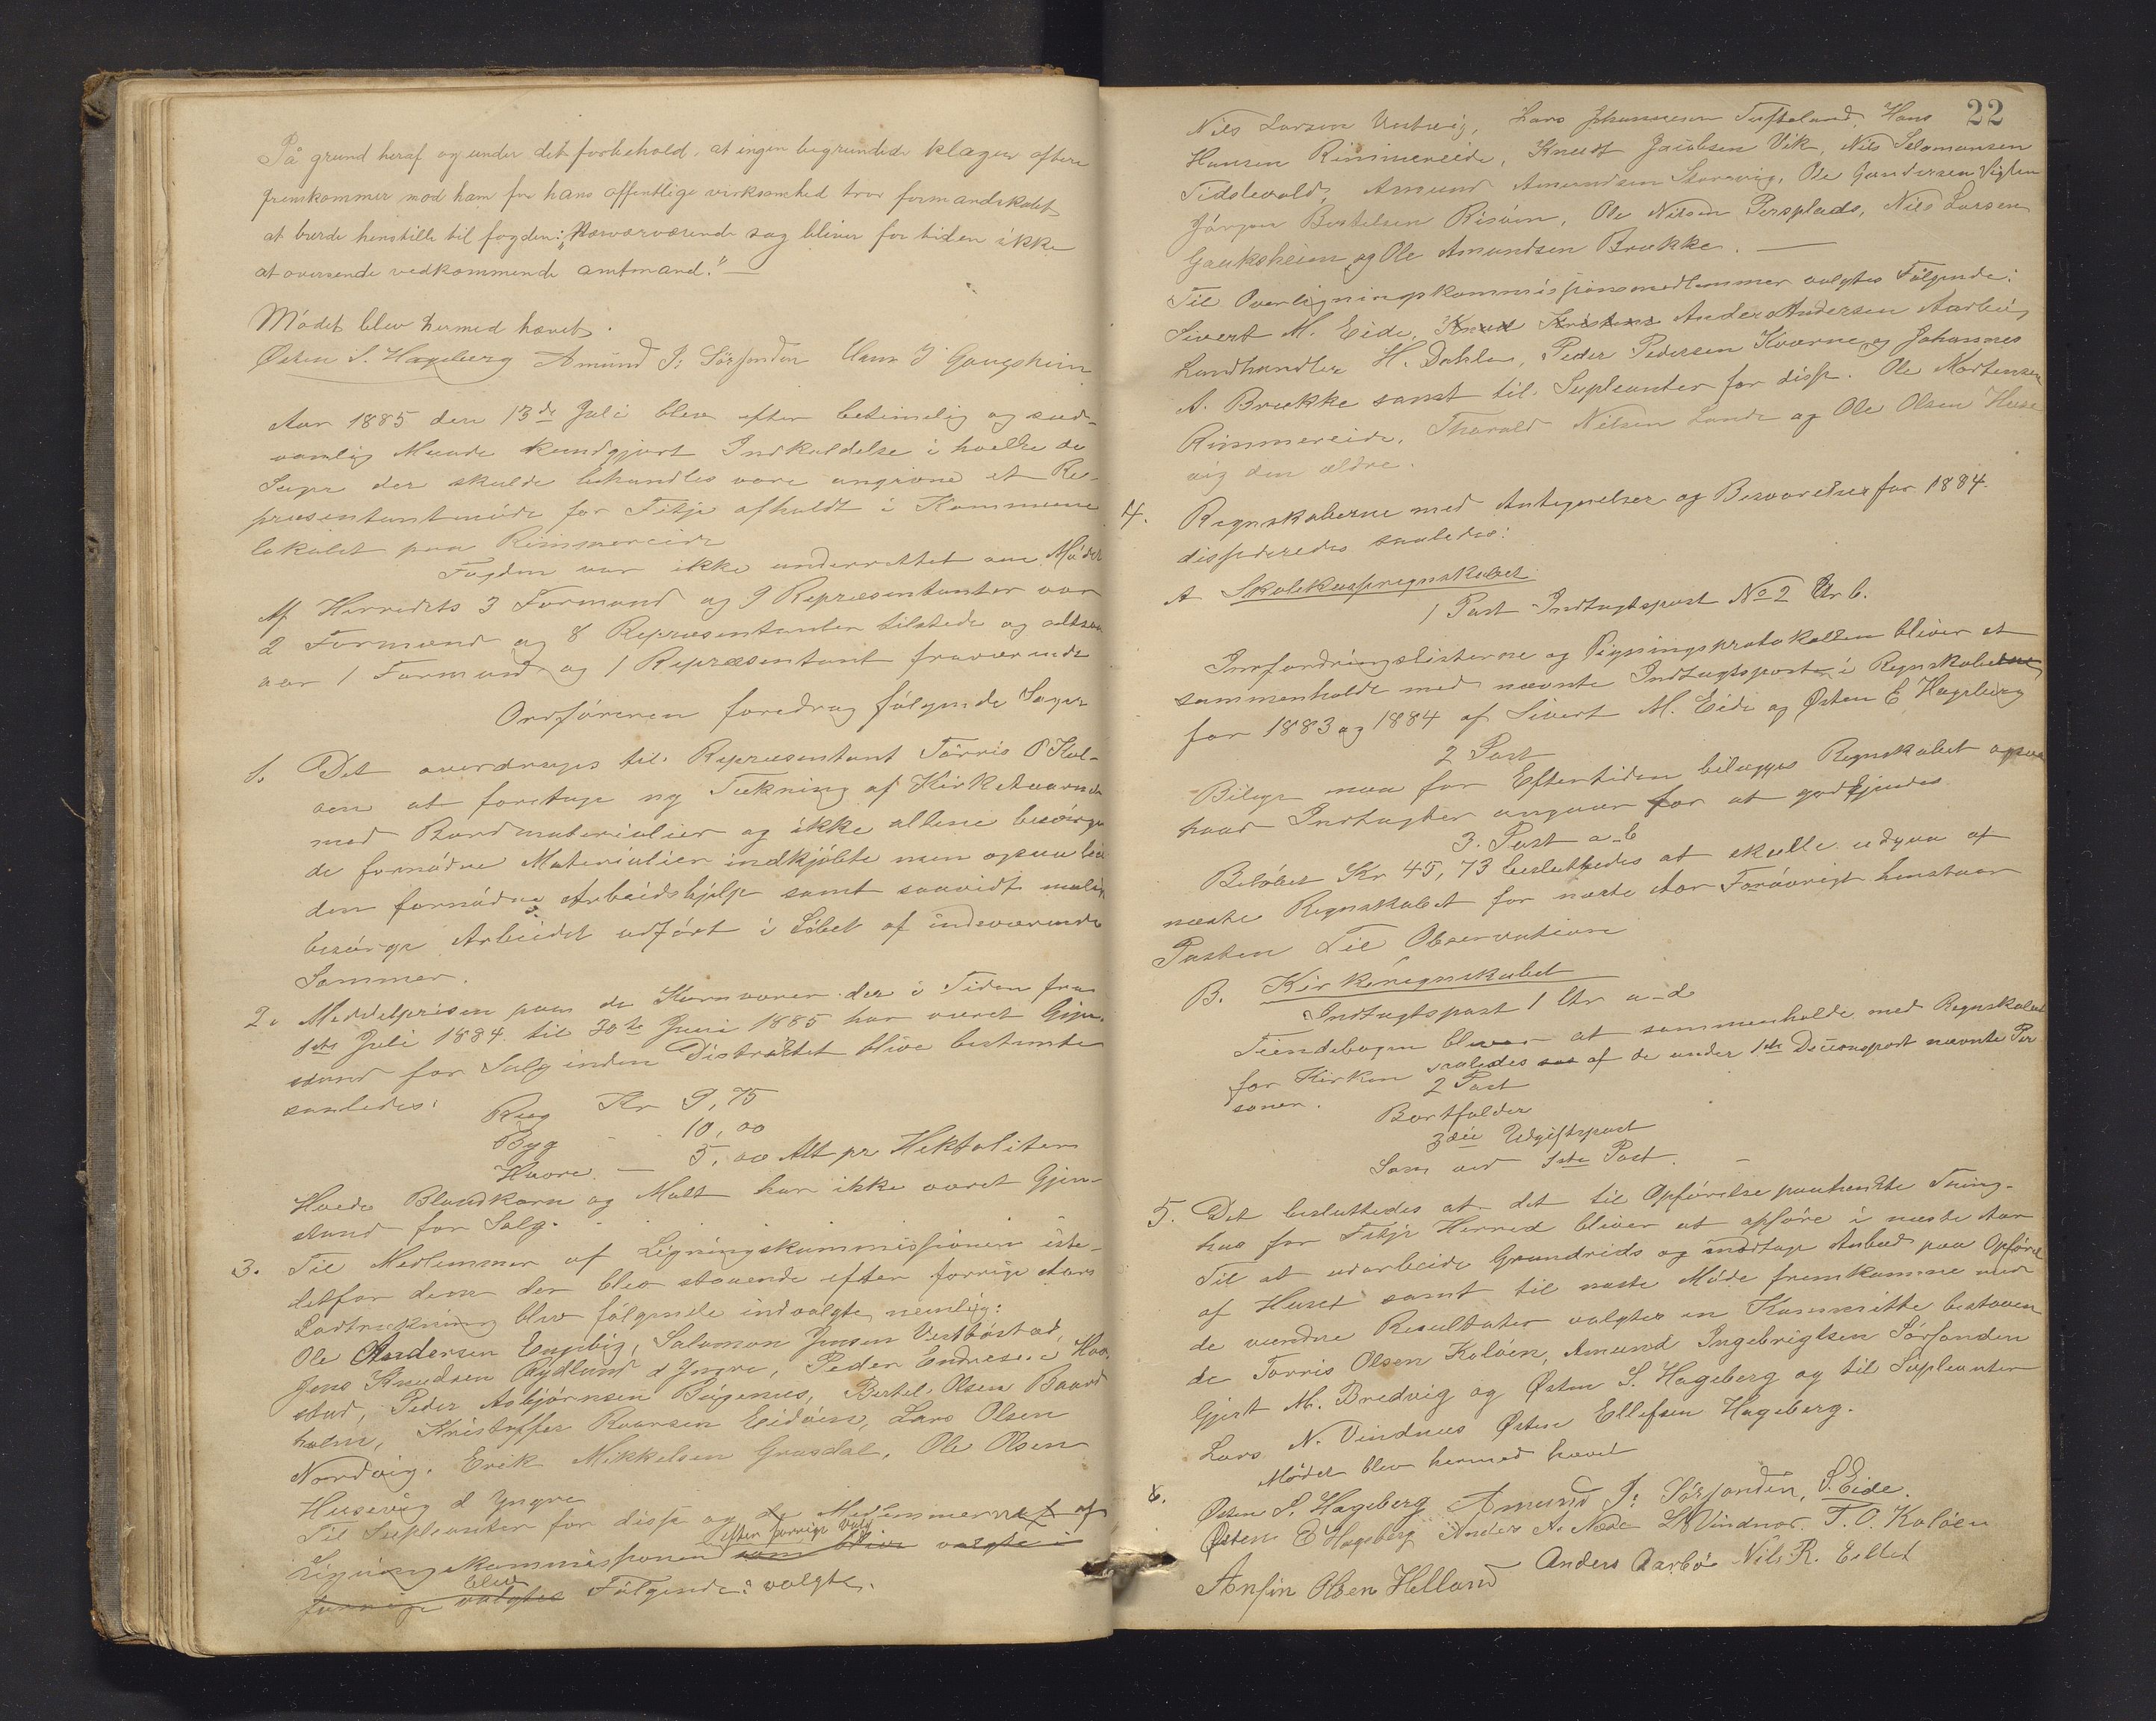 På grund heraf og under det forbehold, at ingen begrundede klager oftere
fremkommer mod ham for hans offentlige virksomhed tror formandskabet
at burde henstille til fogden: "Nærværværende sag bliver for tiden ikke
at oversende vedkommende amtmand." —
Mødet blev hermed hævet.
Østen S. Hageberg Amund I: Sörfonden Hans J Gaugsheim
Aar 1885 den 13de Juli blev efter betimelig og sæd-
vanlig Maade kundgjort Indkaldelse i hvilke de
Sager der skulde behandles vare angivne et Re-
præsentantmøde for Fitje afholdt i Kommune
lokalet paa Rimmereide
Fogden var ikke underrettet om Mødet
Af Herredets 3 Formænd og 9 Repræsentanter var
2 Formænd og 8 Repræsentanter tilstede og altsaa
var 1 Formand og 1 Repræsentant fraværende
Ordføreren foredrag følgende Sager
1. Det overdrages til Repræsentant Törris O Kal-
øen at foretage ny Tækning af Kirketaarnet
med Bordmaterialier og ikke allene besørge
de fornødne Materialier indkjøbte men ogsaa
den fornødne Arbeidshjelp samt saavidt mulig
besørge Arbeidet udført i Løbet af indeværende
Sommer.
2. Middelprisen paa de Kornvarer der i Tiden fra
1ste Juli 1884 til 30te Juni 1885 har været Gjen-
stand for Salg inden Distriktet blive bestemte
saaledes:
Rug Kr 9,75
Byg - - 10,00
Havre — 5,00 Alt pr Hektoliter
Hvede Blandkorn og Malt har ikke været Gjen-
stand for Salg.
3. Til Medlemmer af Ligningskommissionen iste-
detfor dem der blev staaende efter forrige Aars
Lodtrækning blev følgende indvalgte nemlig:
Ole Andersen Engevig, Salomon Jensen Vestbøstad,
Jens Knudsen Rydland d Yngre, Peder Endresen Hav-
stad, Peder Asbjørnsen Bøgenes, Bertel Olsen Baard
holm, Kristoffer Roarsen Eidøien, Lars Olsen
Nordvig. Erik Mikkelsen Grasdal, Ole Olsen
Husevig d Yngre
Til Supleanter for disse og de Medlemmer af
efter forrige Valg
Ligningskommissionen som blive valgte i
blev
forrige valgtes Følgende: valgte.
22
Nils Larsen Vestvig, Lars Johannesen Tufteland, Hans
Hansen Rimmereide, Knut Jacobsen Vik, Nils Salamonsen
Tislevold, Amund Amundsen Skorvig, Ole Gundersen Viglen
Jörgen Bertelsen Risöen, Ole Nilsen Persplads, Nils Larsen
Gauksheim og Ole Amundsen Brække. —
Til Overligningskommissionsmedlemmer valgtes Følgende:
Sivert M. Eide, Knud Kristens Ander Andersen Aarbö,
Landhandler H. Dahle, Peder Pedersen Kværne, og Johannes
A. Brække samt til Supleanter for disse. Ole Mortensen
Rimmereide, Thorvald Nilsen Lunde og Ole Olsen Huse
vig den ældre.
4. Regnskaberne med Antegnelser og Besvarelser for 1884
dissideredes saaledes:
A Skolekasseregnskabet
1 Post Indtægtspost No 2 Ltr b.
Innfordringslisterne og Pigningsprotokollen bliver at
sammenholde med nævnte Indtægtsposter i Regnskaberne
for 1883 og 1884 af Sivert M. Eide og Østen E Hageberg
2 Post
Bilage maa for Eftertiden bilægges Regnskabet ogsaa
hvad Indtægter angaar for at godkjendes
3. Post a-b
Beløbet Kr 45,73 besluttedes at skulle udgaa af
næste Regnskabet for næste Aar Forøvrigt henstaar
Posten Til Observation
B. Kirkeregnskabet
Indtægtspost 1 Ltr a-d
Tiendebogen bliver at sammenholde med Regnskabet
for Kirken saaledes af de under 1ste Decisionspost nævnte Per
soner.
2 Post
Bortfalder
3die Udgiftspost
Som ved 1ste Post. —
5. Det besluttedes at det til Opførelse paatænkte Ting-
hus for Fitje Herred bliver at opføre i næste Aar
Til at udarbeide Grundrids og modtage Anbud paa Opførel
af Huset samt til næste Møde fremkomme med
de vundne Resultater valgtes en Kommitte bestaaen
de Torris Olsen Kaløen, Amund Ingebrigtsen Sörfonden
Gjert M. Bredvig og Østen S. Hageberg og til Supleanter
Lars N. Vindnæs Østen Ellefsen Hageberg.
Mødet blev hermed hævet
6.
Østen S. Hageberg Amund I: Sörfonden, S. Eide.
Østen E Hageberg Anders A. Næse L N Vindnæs. T. O. Kaløen
Anfin Olsen Helland Anders Aarbö Nils R.